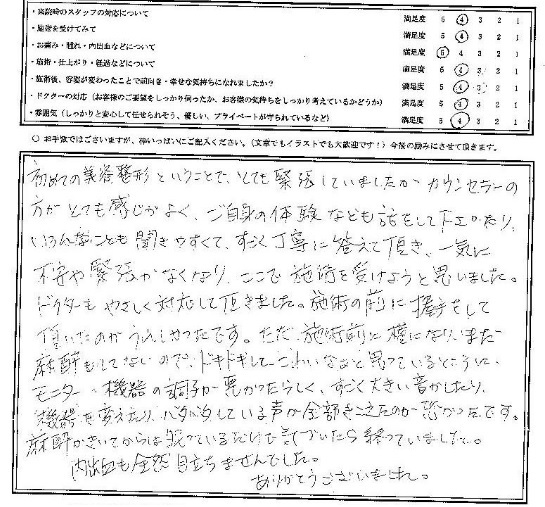 ・来院時のスタッフの対応について 満足度 5 4 3 2 1
・施術を受けてみて 満足度 5 4 3 2 1
・お痛み・腫れ・内出血などについて 満足度 5 4 3 2 1
・施術・仕上がり・経過などについて 満足度 5 4 3 2 1
・施術後、容姿が変わったことで前向き・幸せな気持ちになれましたか？ 満足度 5 4 3 2 1
・ドクターの対応（お客様のご要望をしっかり伺ったか、お客様の気持ちをしっかり考えているかどうか） 満足度 5 4 3 2 1
・雰囲気（しっかりと安心して任せられそう、優しい、プライベートが守られているなど） 満足度 5 4 3 2 1
○ お手数ではございますが、枠いっぱいにご記入ください。（文章でもイラストでも大歓迎です！）今後の励みにさせて頂きます。
初めての美容整形ということで、とても緊張していましたがカウンセラーの
方がとても感じがよく、ご自身の体験なども話をして下さったり、
いろんなことも聞きやすくて、すごく丁寧に答えて頂き、一気に
不安や緊張がなくなり、ここで施術を受けようと思いました。
ドクターもやさしく対応して頂きました。施術の前に握手をして
頂いたのがうれしかったです。ただ、施術前に横になり、まだ
麻酔もしてないので、ドキドキしてこわいなぁと思っているところに
モニター、機器の調子が悪かったらしく、すごく大きい音がしたり、
機器を変えたり、バタバタしている声が全部きこえたのが恐かったです。
麻酔がきいてからは眠っているだけで気づいたら終っていました。
内出血も全然目立ちませんでした。
ありがとうございました。